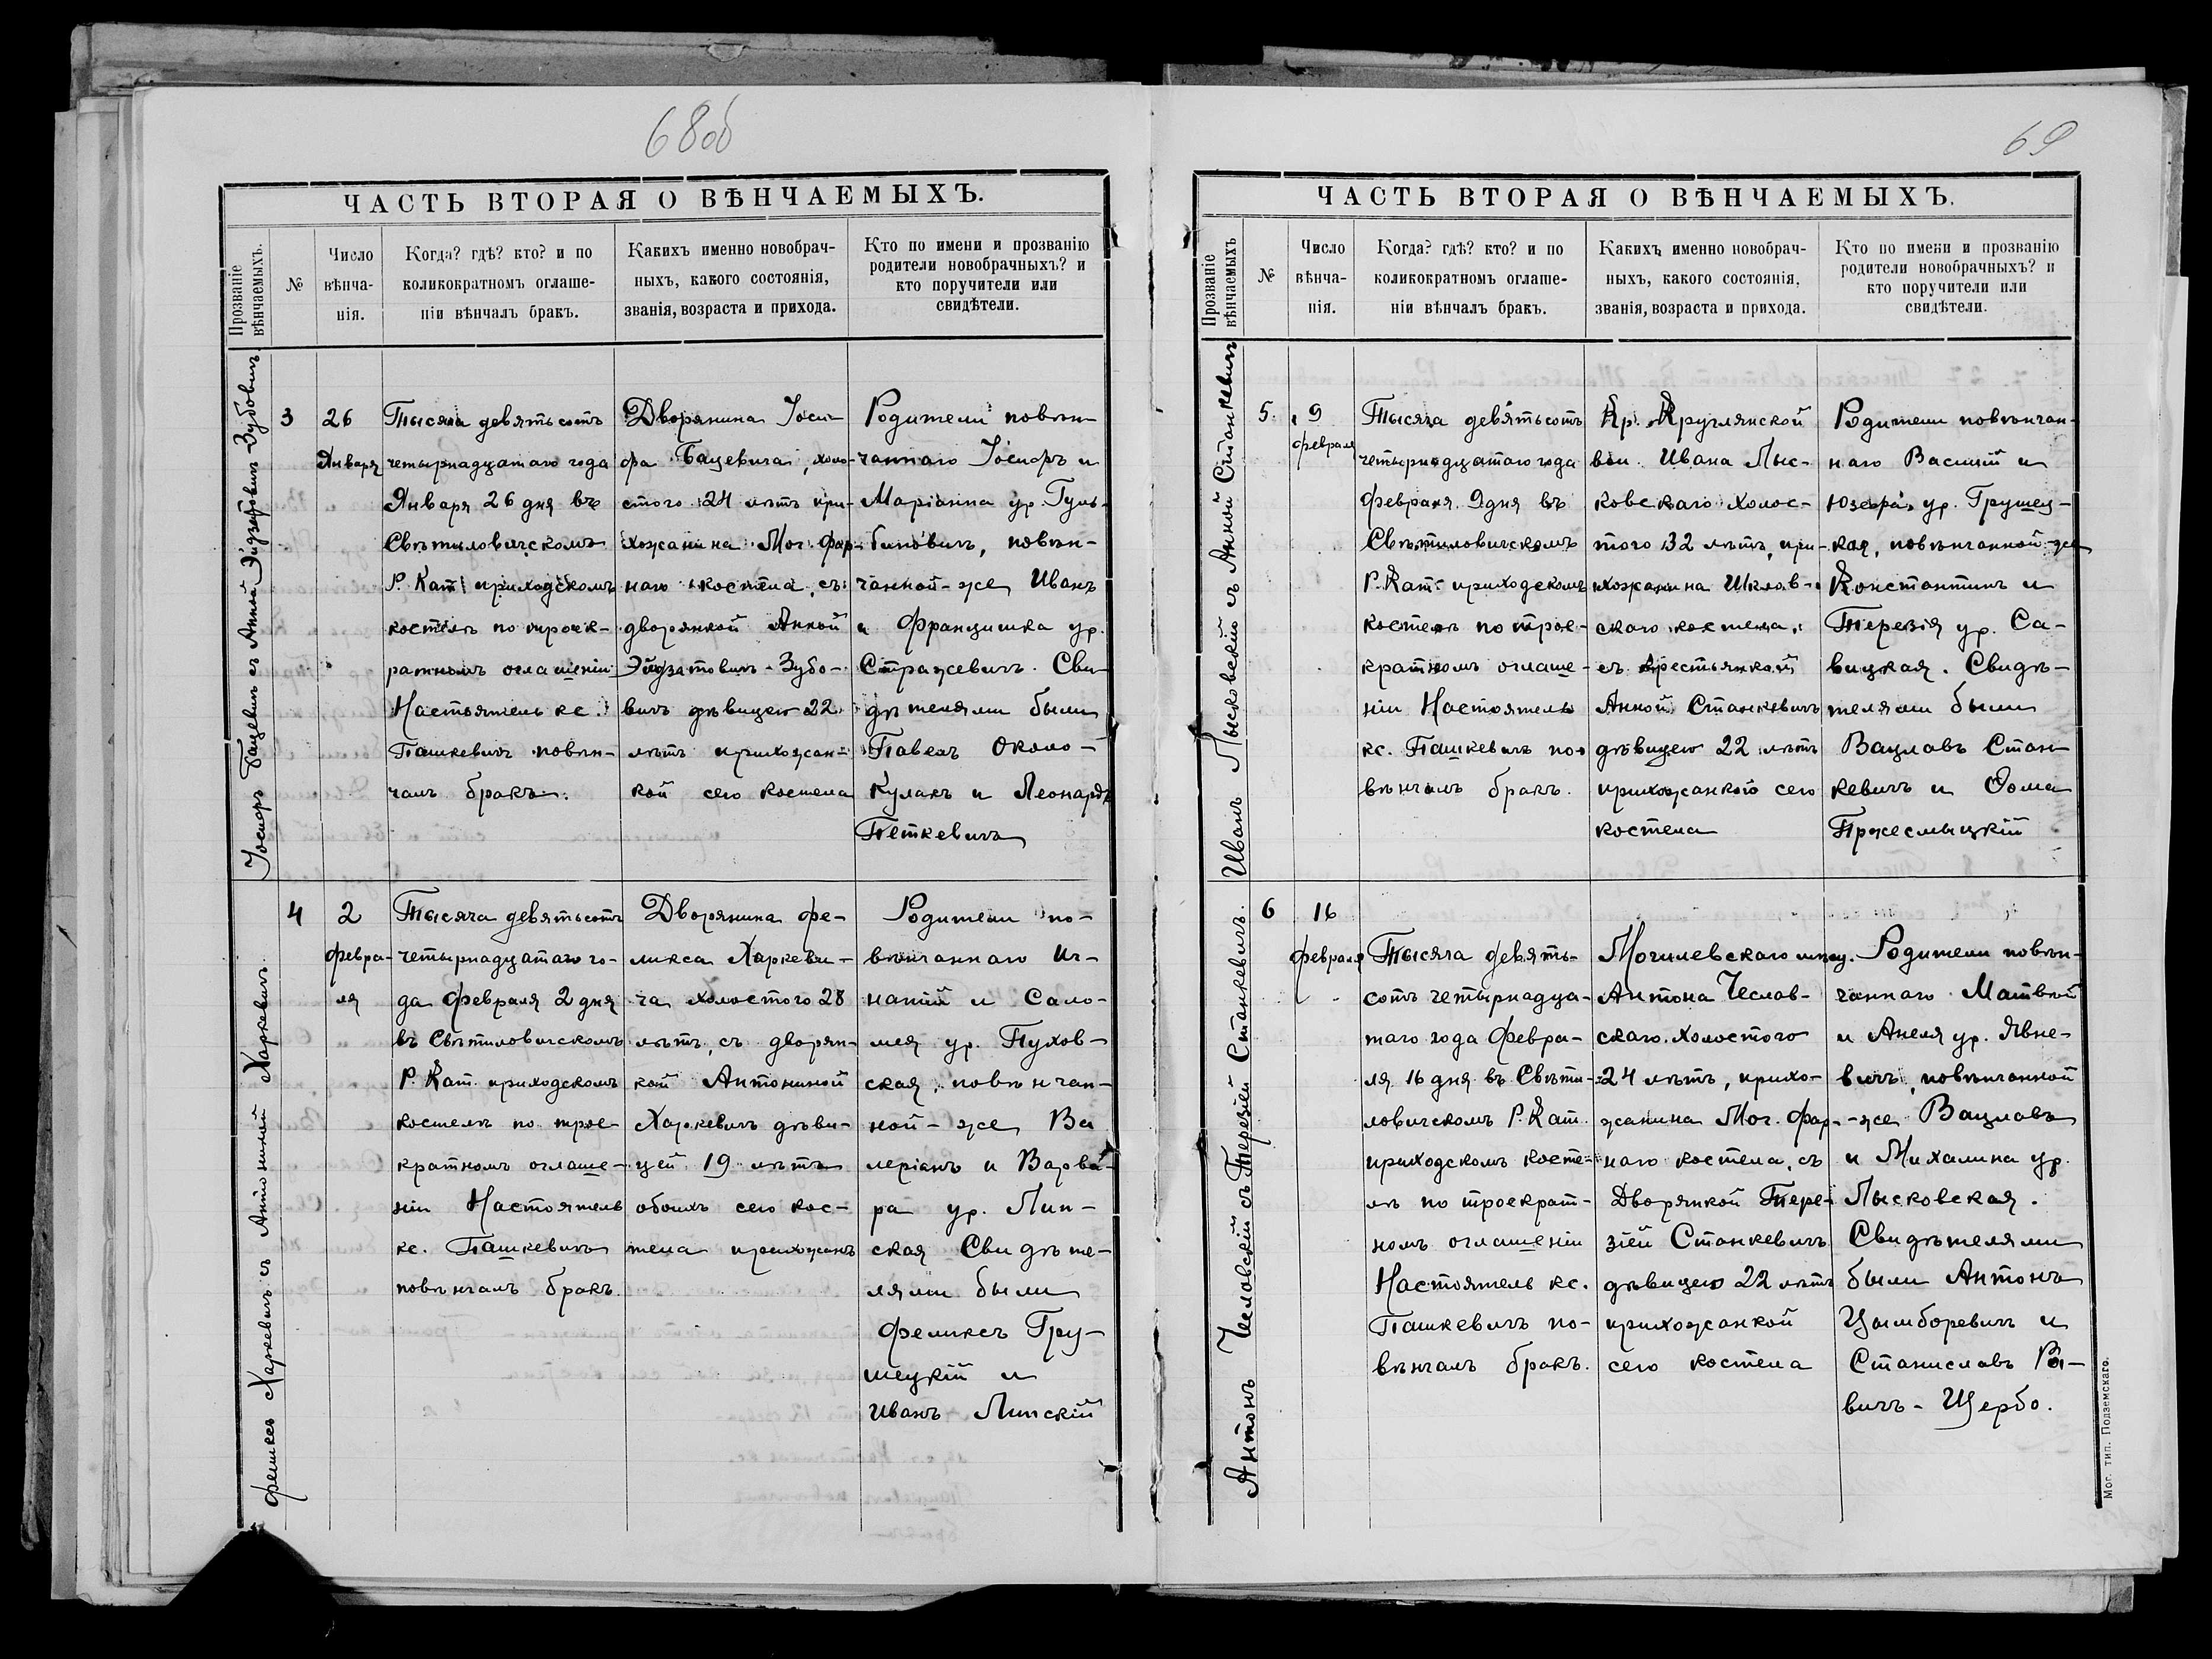 68об
ЧАСТЬ ВТОРАЯ О ВѢНЧАЕМЫХЪ.
Прозваніе
вѣнчаемыхъ.
№
Число
вѣнча-
нія.
Когда? гдѣ? кто? и по
коликократномъ оглаше-
ніи вѣнчалъ бракъ.
Какихъ именно новобрач-
ныхъ, какого состоянія,
званія, возраста и прихода.
Кто по имени и прозванію
родители новобрачныхъ? и
кто поручители или
свидѣтели.
Іосифъ Бацевичъ съ Анной Эйдзятовичъ-Зубовичъ
3
26
Января
Тысяча девятьсотъ
четырнадцатаго года
Января 26 дня въ
Свѣтиловичскомъ
Р. Кат. приходскомъ
костелѣ по троек-
ратномъ оглашеніи
Настоятель кс.
Пашкевичъ повѣн-
чалъ бракъ.
Дворянина Іоси-
фа Бацевича, холо-
стого 24 лѣтъ при-
хожанина Мог. Фар-
наго костела, съ
дворянкой Анной
Эйдзятовичъ-Зубо-
вичъ дѣвицею 22
лѣтъ прихожан-
кой сего костела
Родители повѣн-
чаннаго Іосифъ и
Маріанна ур. Гуль-
биновичъ, повѣн-
чанной-же Иванъ
и Францишка ур.
Стражевичъ. Сви-
дѣтелями были
Павелъ Около-
Кулакъ и Леонардъ
Петкевичъ
Феликсъ Харкевичъ съ Антониной Харкевичъ.
4
2
Февра-
ля
Тысяча девятьсотъ
четырнадцатаго го-
да Февраля 2 дня
въ Свѣтиловичскомъ
Р. Кат. приходскомъ
костелѣ по трое-
кратномъ оглаше-
ніи Настоятель
кс. Пашкевичъ
повѣнчалъ бракъ.
Дворянина Фе-
ликса Харкеви-
ча холостого 28
лѣтъ, съ дворян-
кой Антониной
Харкевичъ дѣви-
цей 19 лѣтъ
обоихъ сего кос-
тела прихожанъ
Родители по-
вѣнчаннаго Иг-
натій и Сало-
мея ур. Пухов-
ская, повѣнчан-
ной-же Ва
леріанъ и Варва-
ра ур. Лип-
ская Свидѣте-
лями были
Феликсъ Гру-
шецкій и
Иванъ Липскій
69
ЧАСТЬ ВТОРАЯ О ВѢНЧАЕМЫХЪ.
Прозваніе
вѣнчаемыхъ
№
Число
вѣнча-
нія.
Когда? гдѣ? кто? и по
коликократномъ оглаше-
ніи вѣнчалъ бракъ.
Какихъ именно новобрач-
ныхъ, какого состоянія,
званія, возраста и прихода.
Кто по имени и прозванію
родители новобрачныхъ? и
кто поручители или
свидѣтели.
Иванъ Лысковскій съ Анной Станкевичъ
5
9
февраля
Тысяча девятьсотъ
четырнадцатаго года
Февраля 9 дня въ
Свѣтиловичскомъ
Р. Кат. приходскомъ
костелѣ по трое-
кратномъ оглаше-
ніи Настоятель
кс. Пашкевичъ по-
вѣнчалъ бракъ.
Кр. Круглянской
вол. Ивана Лыс-
ковскаго холос-
того 32 лѣтъ, при-
хожанина Шклов-
скаго костела,
съ крестьянкой
Анной Станкевичъ
дѣвицею 22 лѣтъ
прихожанкой сего
костела
Родители повѣнчан-
наго Василій и
Юзефа ур. Грушец-
кая, повѣнчанной-же
Константинъ и
Терезія ур. Са-
вицкая. Свидѣ-
телями были
Вацлавъ Стан-
кевичъ и Ѳома
Пржесмыцкій
Антонъ Чеславскій съ Терезіей Станкевичъ.
6
16
Февраля
Тысяча девять-
сотъ четырнадца-
таго года Февра-
ля 16 дня въ Свѣти-
ловичскомъ Р. Кат.
приходскомъ косте-
лѣ по троекрат-
номъ оглашеніи
Настоятель кс.
Пашкевичъ по-
вѣнчалъ бракъ.
Могилевскаго мѣщ.
Антона Чеслав-
скаго холостого
24 лѣтъ, прихо-
жанина Мог. Фар-
наго костела, съ
Дворянкой Тере-
зіей Станкевичъ
дѣвицею 22 лѣтъ
прихожанкой
сего костела
Родители повѣн-
чаннаго Матвѣй
и Анеля ур. Явне-
вичъ, повѣнчанной
-же Вацлавъ
и Михалина ур.
Лысковская.
Свидѣтелями
были Антонъ
Цымборевичъ и
Станиславъ
вичъ-Щербо.
Мог. тип. Подземскаго.